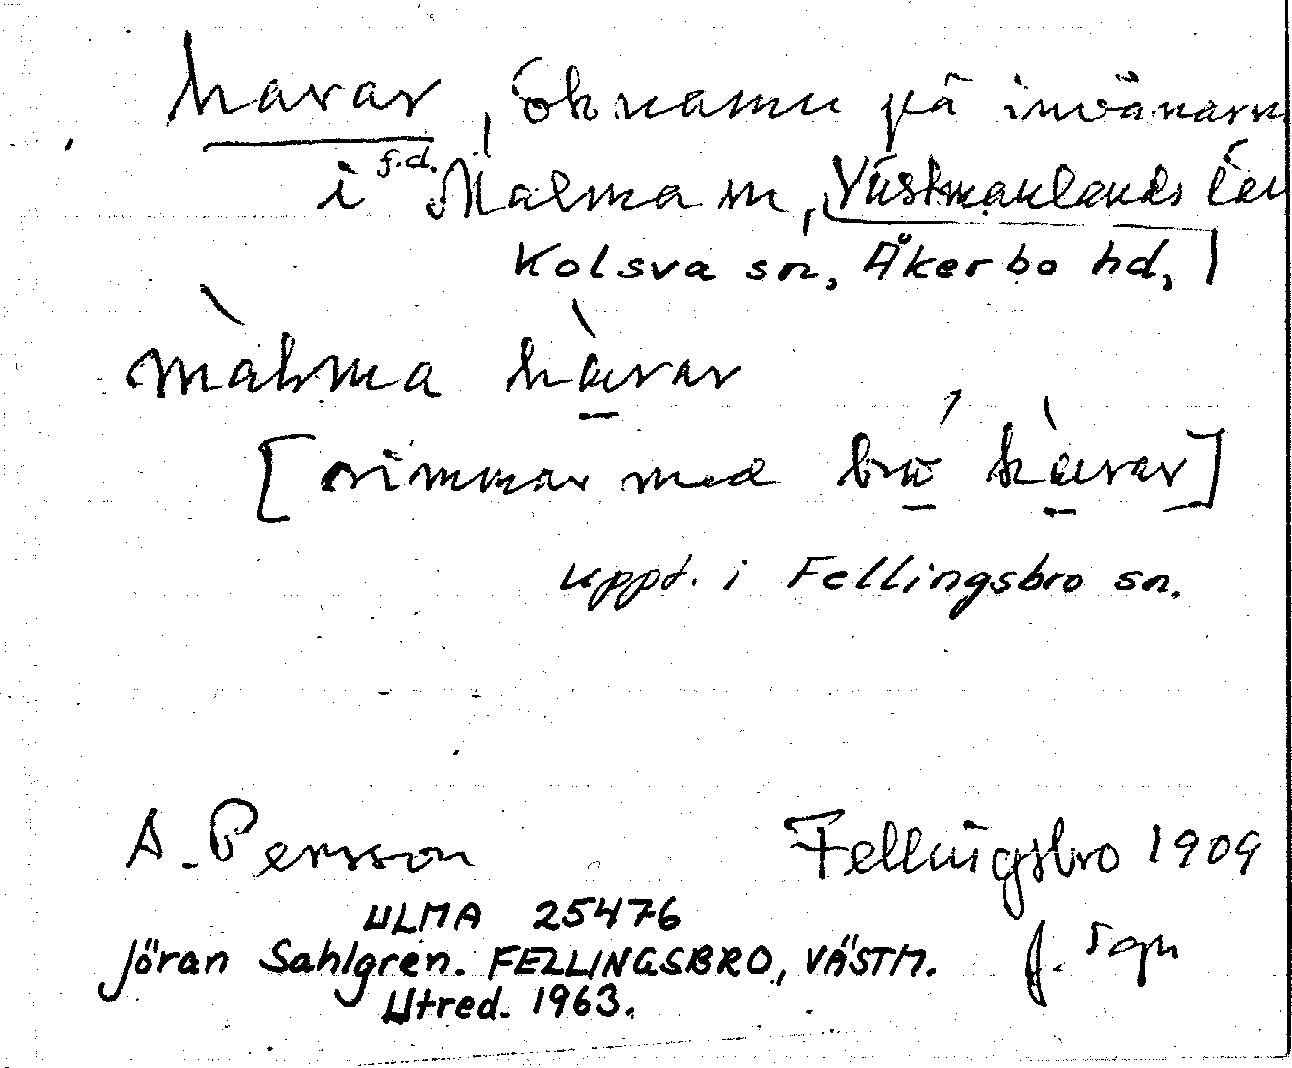 harar, öknamn på invånarn
i f.d. Malma sn, Västmanlands län
Kolsva sn, Åkerbo hd,
màlma hàrar
[rimmar med bra hàrar]
uppt. i Fellingsbro sn.
A. Persson Fellingsbro 1909
ULMA 25476
Jöran Sahlgren. FELLINGSBRO, VÄSTM.
Utred. 1963.